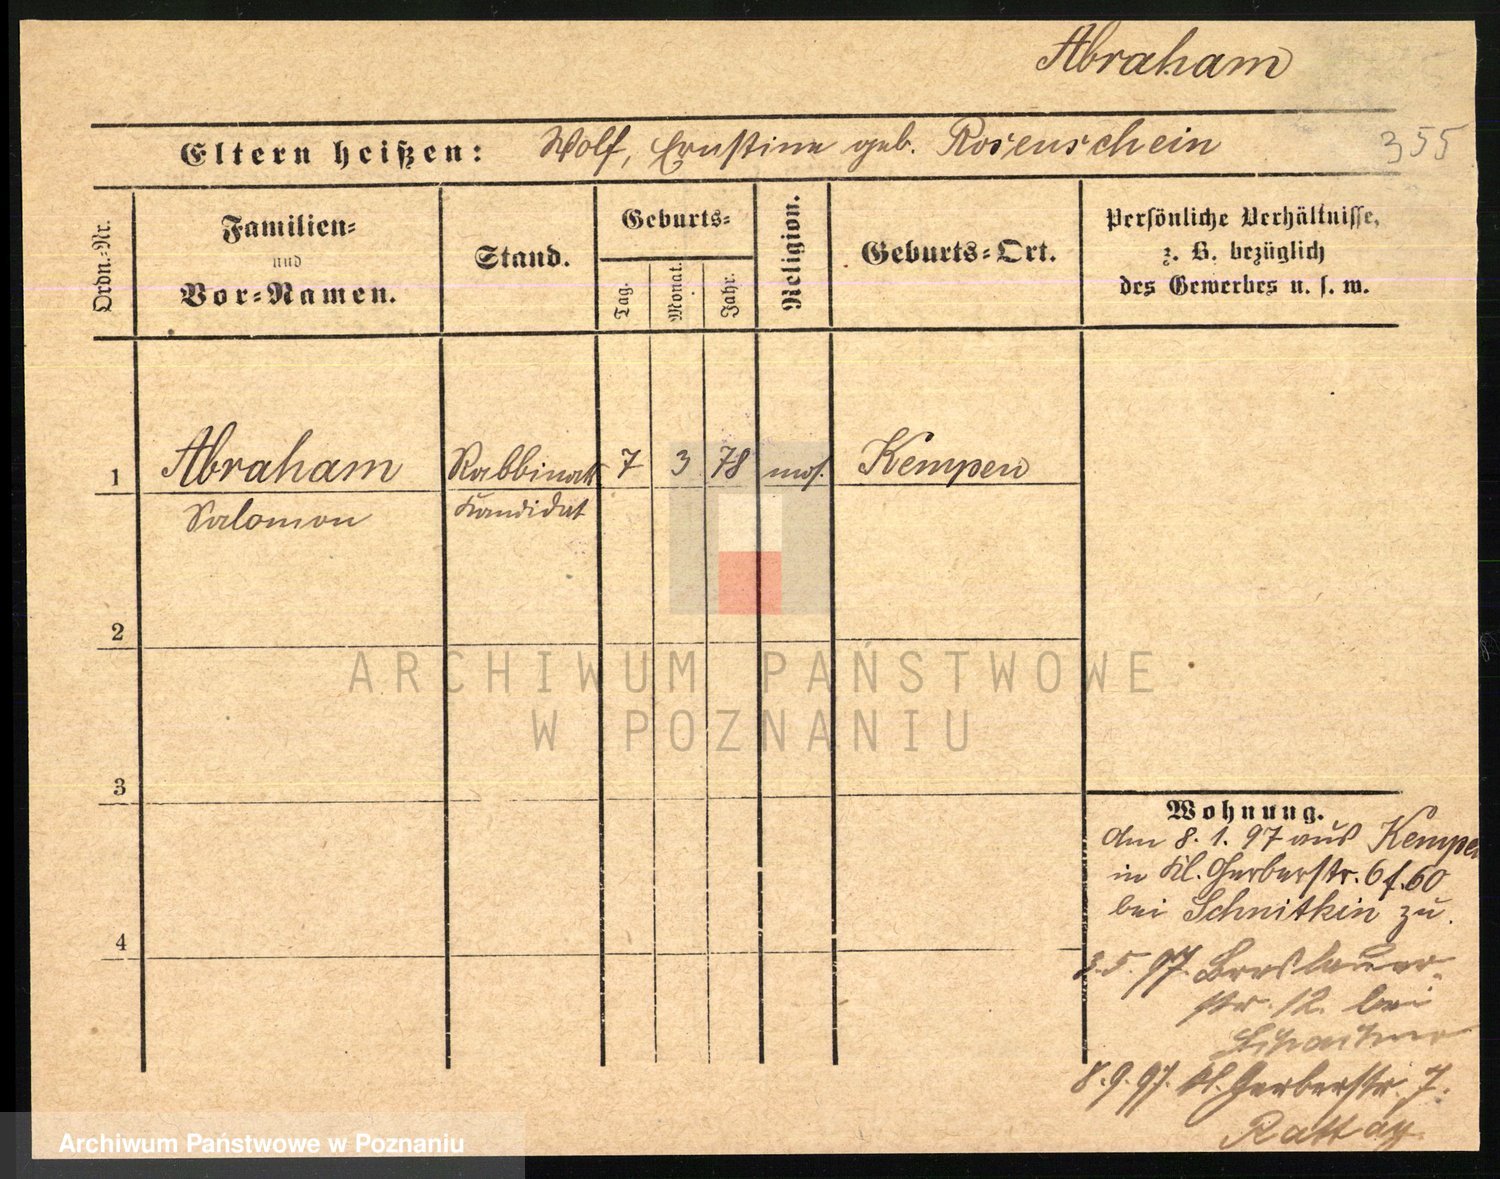 Abraham
355
Eltern heißen: Wolf, Ernstine geb. Rosenschein
Ordn.-Nr.
Familien-
und
Vor-Namen.
Stand.
Geburts-
Tag.
Monat.
Jahr.
Religion.
Geburts-Ort.
Persönliche Verhältnisse,
z. B. bezüglich
des Gewerbes u. s. w.
1 Abraham Rabbinats 7 3 78 mos. Kempen
Salomon Kandidat
2
3
4
Wohnung.
Am 8.1.97 aus Kempen
in Kl. Gerberstr. 6 f. 60
bei Schnitkin zu.
3.5.97. Breslauer-
str. 12. bei
8.9.97. Kl. Gerberstr. 7.
Rattay
ARCHIWUM PAŃSTWOWE
W POZNANIU
Archiwum Państwowe w Poznaniu